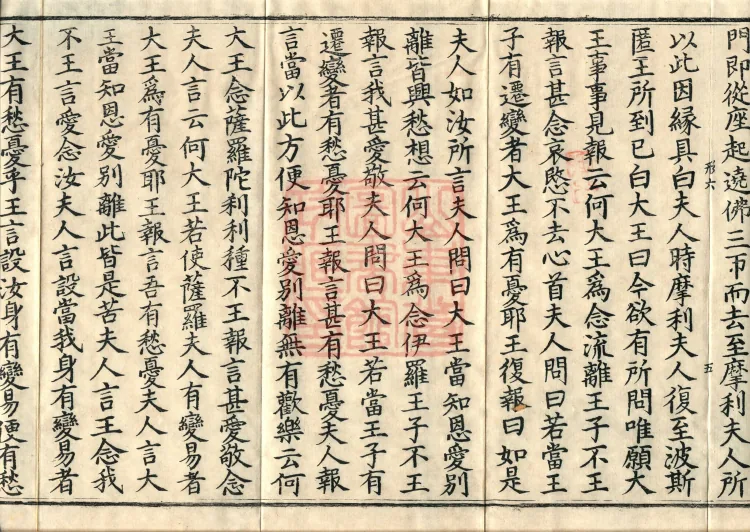 門即從座起遶佛三帀而去至摩利夫人所
以此因縁具白夫人時摩利夫人復至波斯
匿王所到已白大王曰今欲有所問唯願大
王事事見報云何大王為念流離王子不王
報言甚念哀愍不去心首夫人問曰若當王
子有遷變者大王為有憂耶王復報曰如是
夫人如汝所言夫人問曰大王當知恩愛別
離皆興愁想云何大王為念伊羅王子不王
報言我甚愛敬夫人問曰大王若當王子有
遷變者有愁憂耶王報言甚有愁憂夫人報
言當以此方便知恩愛別離無有歡樂云何
大王念薩羅陀刹利種不王報言甚愛敬念
夫人言云何大王若使薩羅夫人有變易者
大王為有憂耶王報言吾有愁憂夫人言大
王當知恩愛別離此皆是苦夫人言王念我
不王言愛念汝夫人言設當我身有變易者
大王有愁憂乎王言設汝身有變易便有愁
形六
五